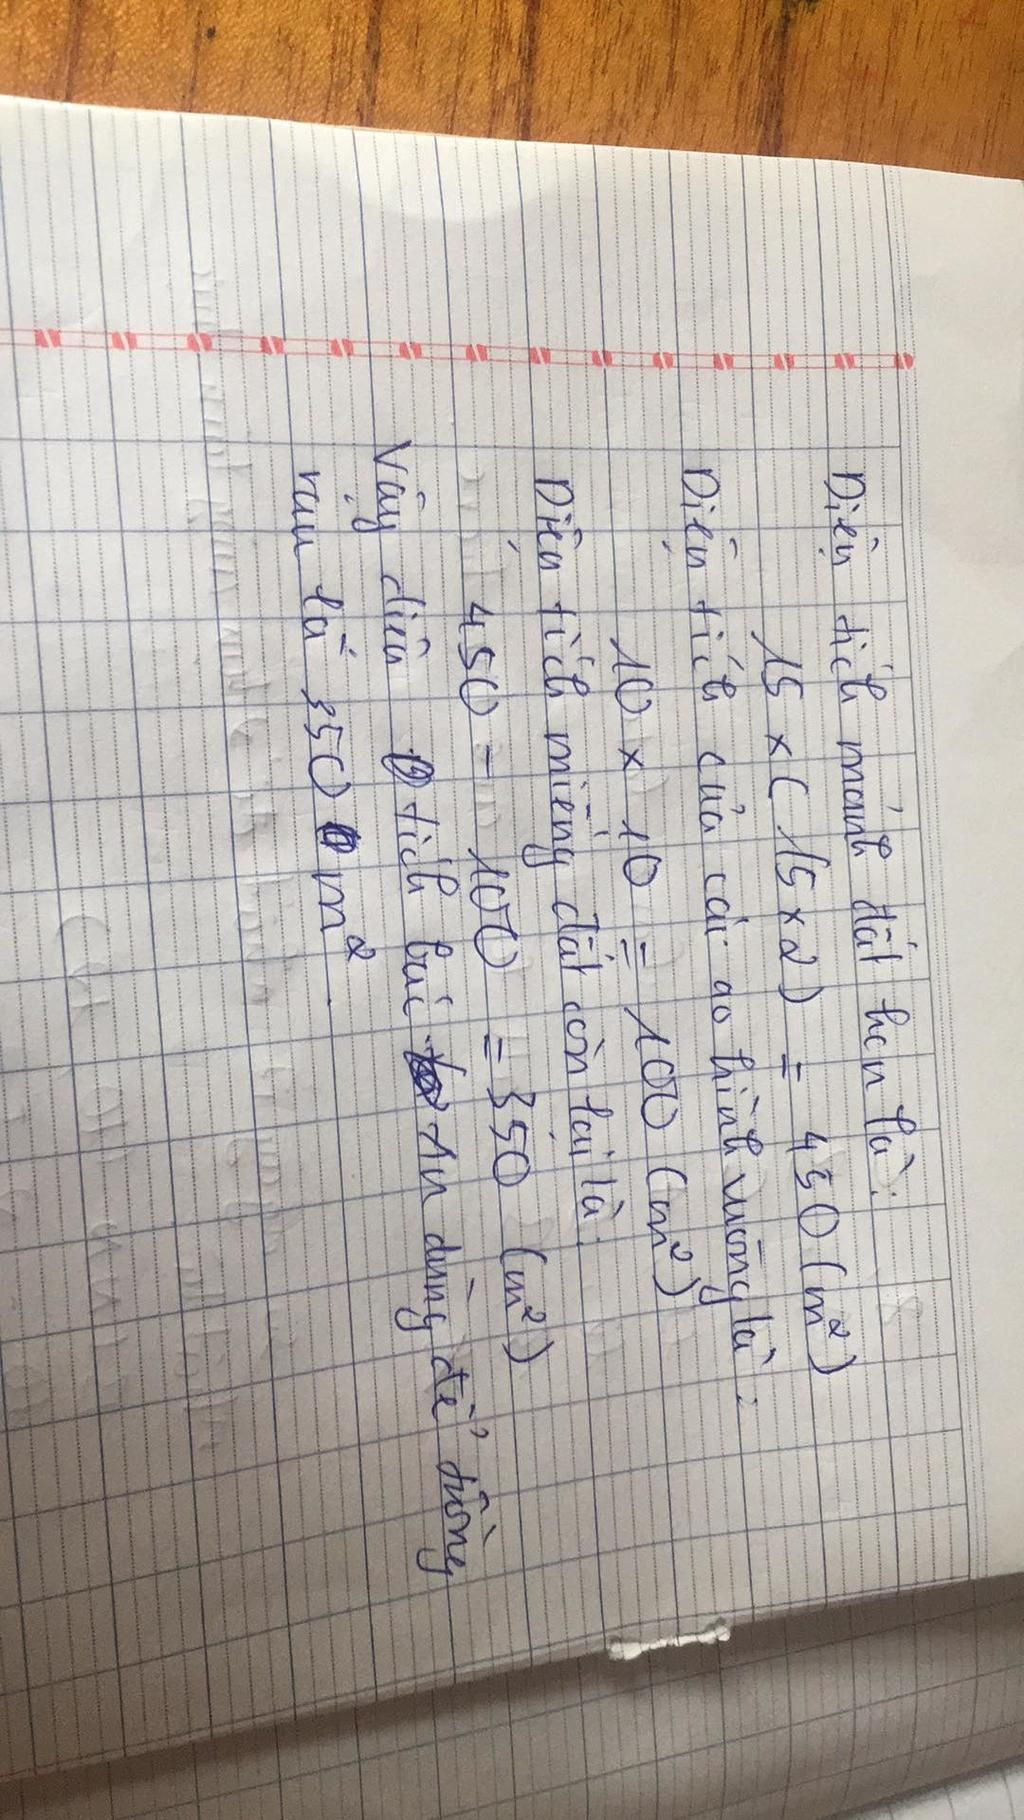 Diện tích mảnh đất hcn là:
15 x ( 15 x 2) = 450 (m²)
Diện tích của cái ao hình vuông là:
10 x 10 = 100 (m²)
Diện tích miếng đất còn lại là:
450 - 100 = 350 (m²)
Vậy diện tích bác An dùng để trồng
rau là 350 m².